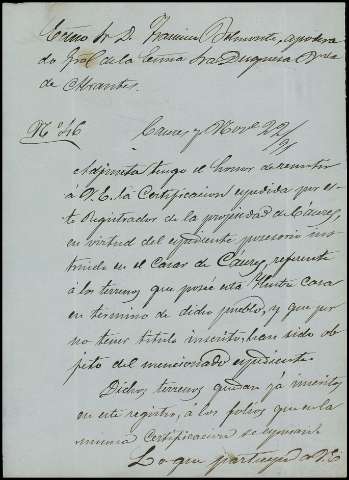 Excmo Sr D. Francisco Belmonte, apodera
do Gral de la Excma Sra Duquesa Viuda
de Abrantes.
Nº 46
Caceres y Novbre 22/91
Adjunta tengo el honor de remitir
á V.E. la Certificacion expedida por es-
te Registrador de la propiedad de Cáceres,
en virtud del expediente posesorio ins-
truido en el Casar de Caceres, referente
á los terrenos que posee esta Ilustre Casa
en término de dicho pueblo, y que por
no tener titulo inscrito, han sido ob-
jeto del mencionado expediente.
Dichos terrenos quedan yá inscritos
en este registro, á los folios que en la
misma Certificacion se expresan.
Lo que participo a V.E.